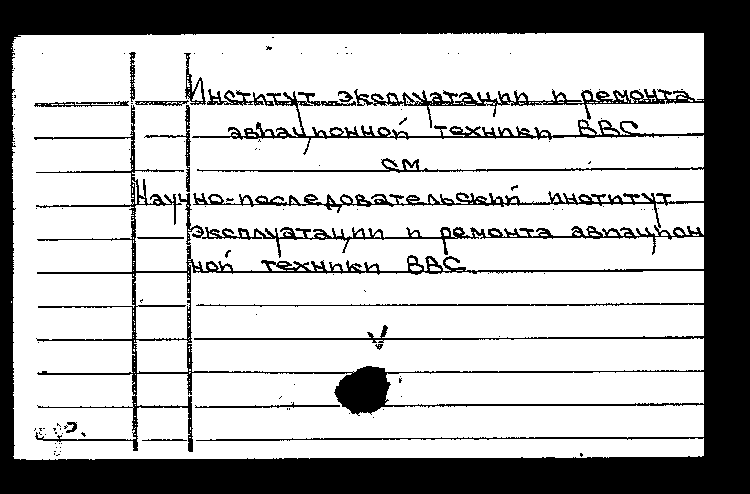 Институт эксплуатации и ремонта
авиационной техники ВВС
см.
Научно-последовательский институт
эксплуатации и ремонта авиацион
ной техники ВВС.